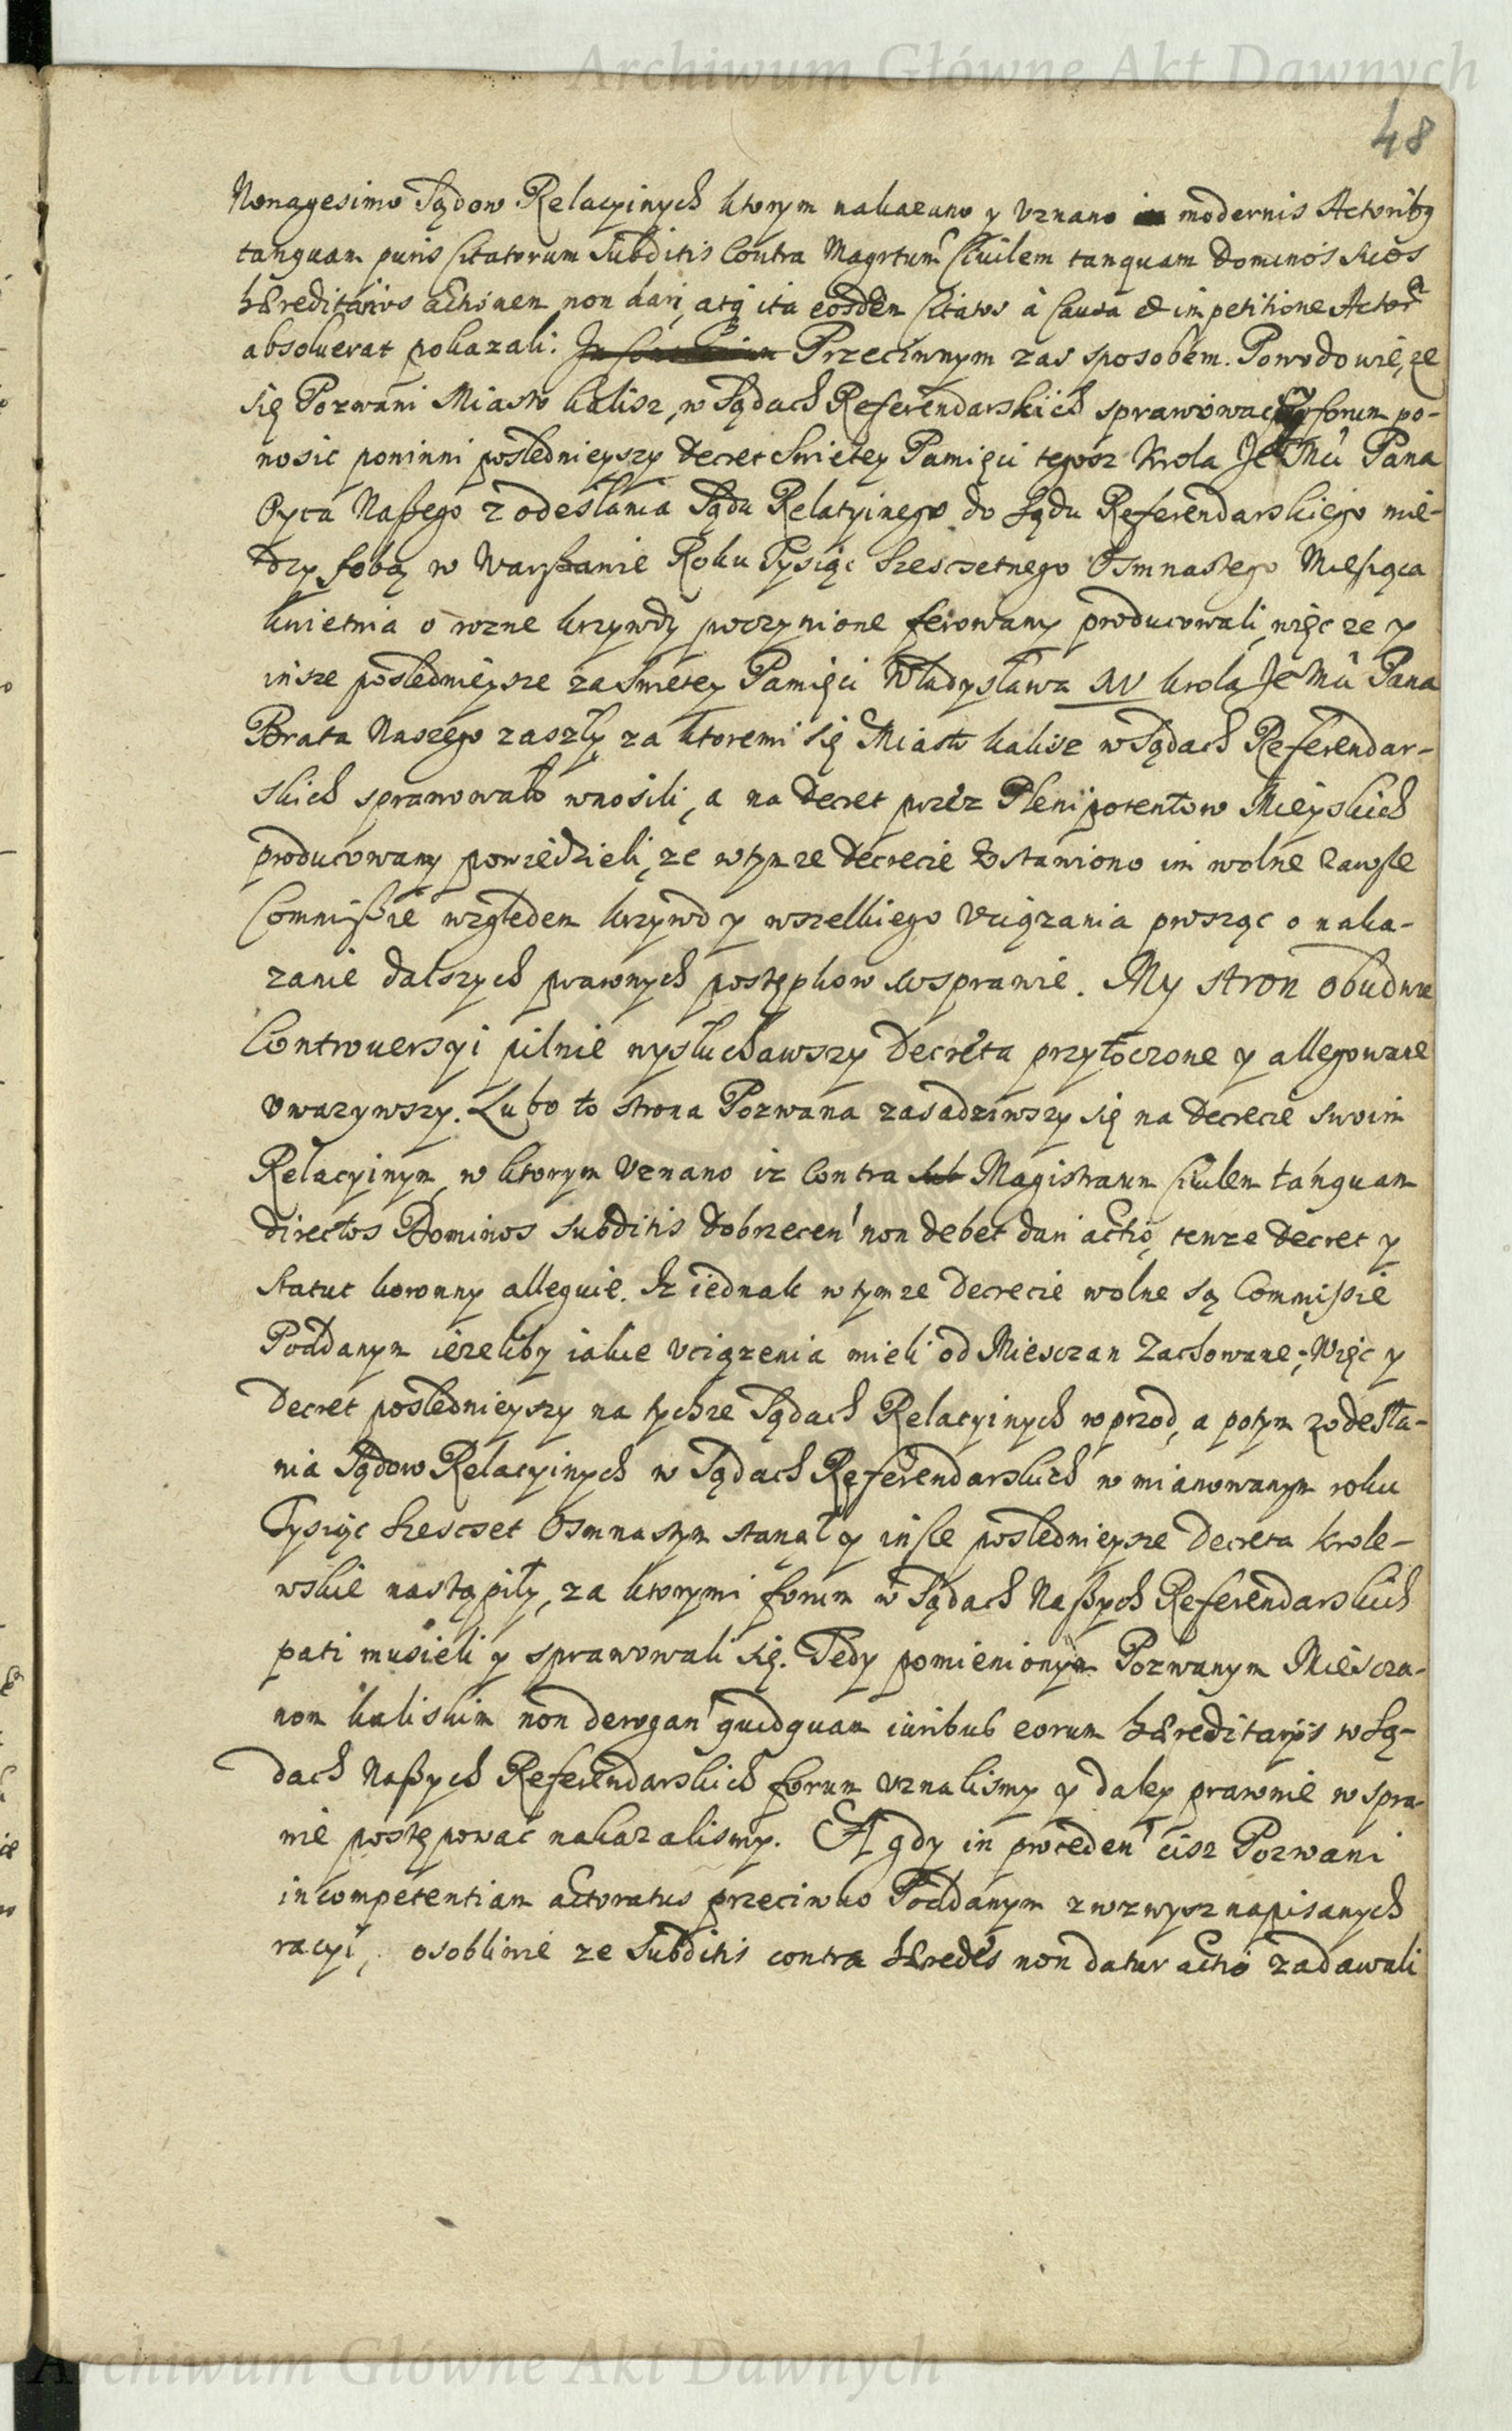 Archiwum Główne Akt Dawnych
48
Nonagesimo Sądow Relacyinych ktorym nakazano y Vznano modernis Actoribq
tanquam puris Citatorum Subditis Contra Magrtum Ciuilem tanquam Dominos suos
hæreditarios actionem non dari, atq ita eosdem Citatos à Causa & impetitione Actor
absoluerat pokazali. Przeciwnym zas sposobem. Powodowie, ze
się Pozwani Miasto Kalisz, w Sądach Referendarskich sprawowac y forum po-
nosic powinni poslednieyszy Decret Swietey Pamięci tegosz Krola Je Mci Pana
Oyca Naszego z odesłania Sądu Relacyinego do Sądu Referendarskiego mie-
dzy sobą w Warszawie Roku Tysiąc Szescsetnego Osmnastego Miesiąca
Kwietnia o rozne krzywdy poczynione ferowany producowali, więc ze y
insze poslednieysze za Swietey Pamięci Władysława IV Krola Je Mci Pana
Brata Naszego zaszły za ktoremi się Miasto Kalisz w Sądach Referendar-
skich sprawowało wnosili, a na Decret przez Plenipotentow Mieyskich
producowany powiedzieli, ze w tymze Decrecie zostawiono im wolne zawsze
Commissie względem krzywd y wszelkiego Vciązania prosząc o naka-
zanie dalszych prawnych postępkow w sprawie. My stron obudwu
Controuersyi pilnie wysłuchawszy Decreta przytoczone y allegowane
Vwazywszy. Lubo to strona Pozwana zasadziwszy się na Decrecie swoim
Relacyinym, w ktorym Vznano iz Contra Magistratum Ciuilem tanquam
directos Dominos subditis Dobrzecen non debet dari actio, tenze Decret y
Statut koronny alleguie. Iz iednak w tymze Decrecie wolne są Commissie
Poddanym iezeliby iakie Vciązenia mieli od Miesczan zachowane; Więc y
Decret posledniejszy na tychze Sądach Relacyinych wprzod, a potym z odesła-
nia Sądow Relacyinych w Sądach Referendarskich w mianowanym roku
Tysiąc Szescset Osmnastym stanął y insze poslednieysze Decreta krole-
wskie nastąpiły, za ktorymi forum w Sądach Naszych Referendarskich
pati musieli y sprawowali się. Tedy pomienionym Pozwanym Miescza-
nom Kaliskim non derogan quidquam iuribus eorum hæreditariis w Są-
dach Naszych Referendarskich forum vznalismy y daley prawnie w spra-
wie postępowac nakazalismy. A gdy in proceden cisz Pozwani
incompetentiam actoratus przeciwko Poddanym z wzwysz napisanych
racyi, osobliwie ze Subditis contra hæredes non datur actio zadawali
Archiwum Główne Akt Dawnych